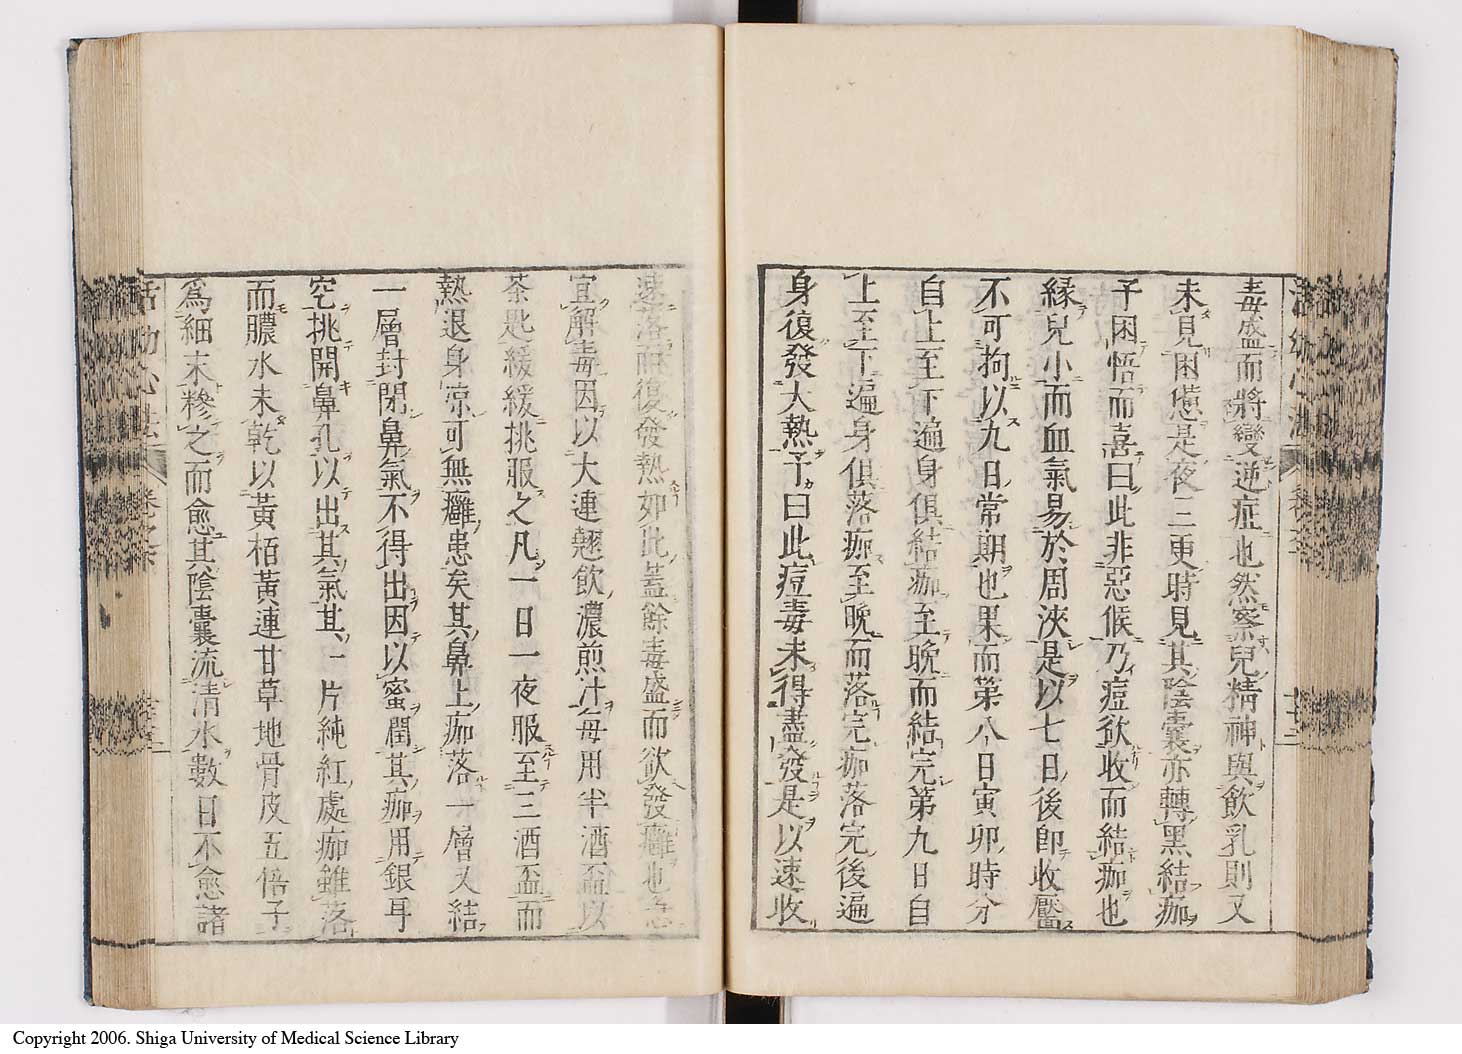 毒盛而將變逆症也然察兒精神與飲乳則又
未見困憊是夜三更時見其陰囊亦轉黑結痂
予困悟而喜曰此非惡候乃痘欲收而結痂也
緣兒小而血氣易於周浹是以七日後卽收靨
不可拘以九日常期也果而第八日寅卯時分
自上至下遍身俱結痂至晚而結完第九日自
上至下遍身俱落痂至晚而落完痂落完後遍
身復發大熱予曰此痘毒未得盡發是以速收
速落而復發熱如此蓋餘毒盛而欲發癰也急
宜解毒因以大連翹飲濃煎汁每用半酒盃以
茶匙緩緩挑服之凡一日一夜服至三酒盃而
熱退身凉可無癰患矣其鼻上痂落一層又結
一層封閉鼻氣不得出因以蜜潤其痂用銀耳
空挑開鼻孔以出其氣其一片純紅處痂雖落
而膿水未乾以黃栢黃連甘草地骨皮五倍子
爲細末糝之而愈其陰囊流清水數日不愈諸
活幼心法
卷之六
Copyright 2006. Shiga University of Medical Science Library